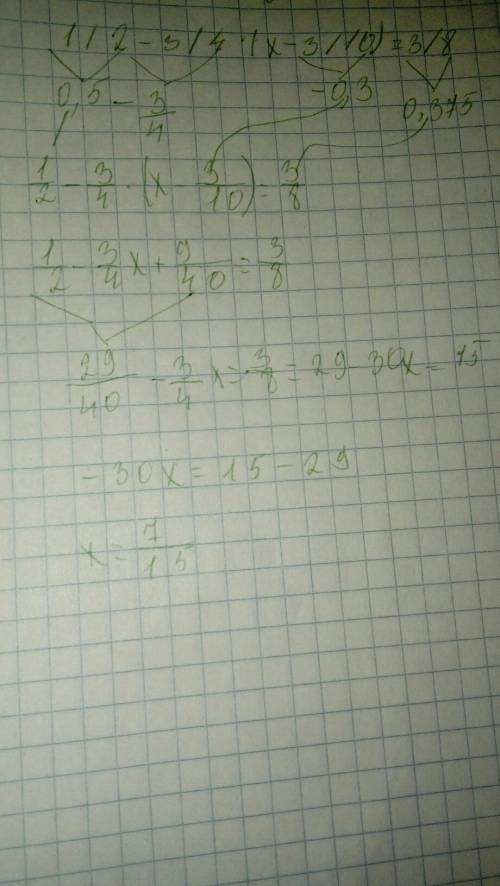 1/2-3/4·(x-3/10)=3/8
0,5-3/4 -0,3 0,375
1/2-3/4·(x-3/10)=3/8
1/2-3/4x+9/40=3/8
29/40-3/4x=3/8=29-30x=15
-30x=15-29
x=7/15